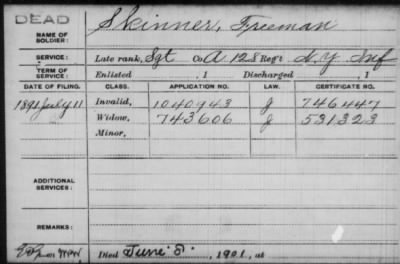 DEAD
NAME OF SOLDIER: Skinner, Freeman
SERVICE: Late rank, Sgt Co. A, 128 Reg't N.Y. Inf
TERM OF SERVICE: Enlisted , 1 Discharged , 1
DATE OF FILING. CLASS. APPLICATION NO. LAW. CERTIFICATE NO.
1891 July 11 Invalid, 1040943 J 746447
Widow, 743606 J 531323
Minor,
ADDITIONAL SERVICES:
REMARKS:
Died June 8, 1901, at